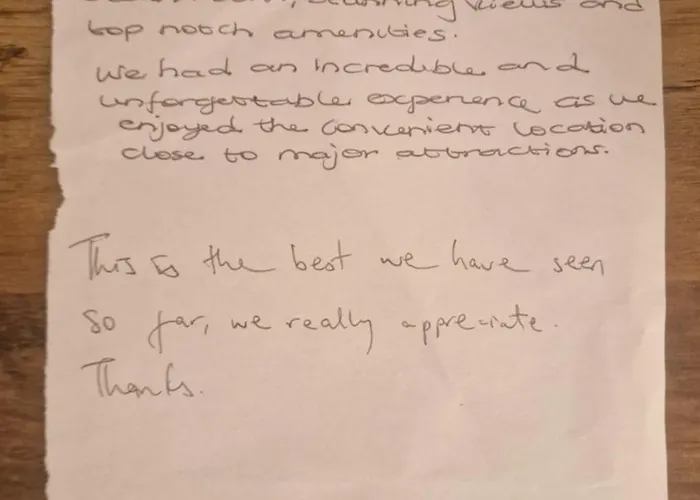 stunning views and
top notch amenities.
We had an incredible and
unforgettable experience as we
enjoyed the convenient location
close to major attractions.
This is the best we have seen
so far, we really appreciate.
Thanks.